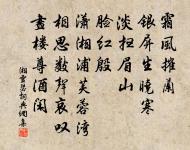 霜風摧蘭
銀屏生曉寒
淡掃眉山
臉紅殷
瀟湘浦芙蓉灣
相思數聲哀叹
畫樓尊酒閑
湘靈瑟詞典網集